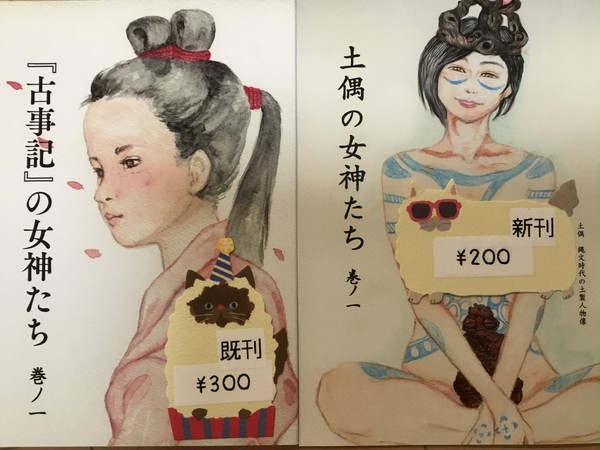 『古事記』の女神たち
巻ノ一
既刊
¥300
土偶の女神たち
巻ノ一
土偶 縄文時代の土製人物像
新刊
¥200